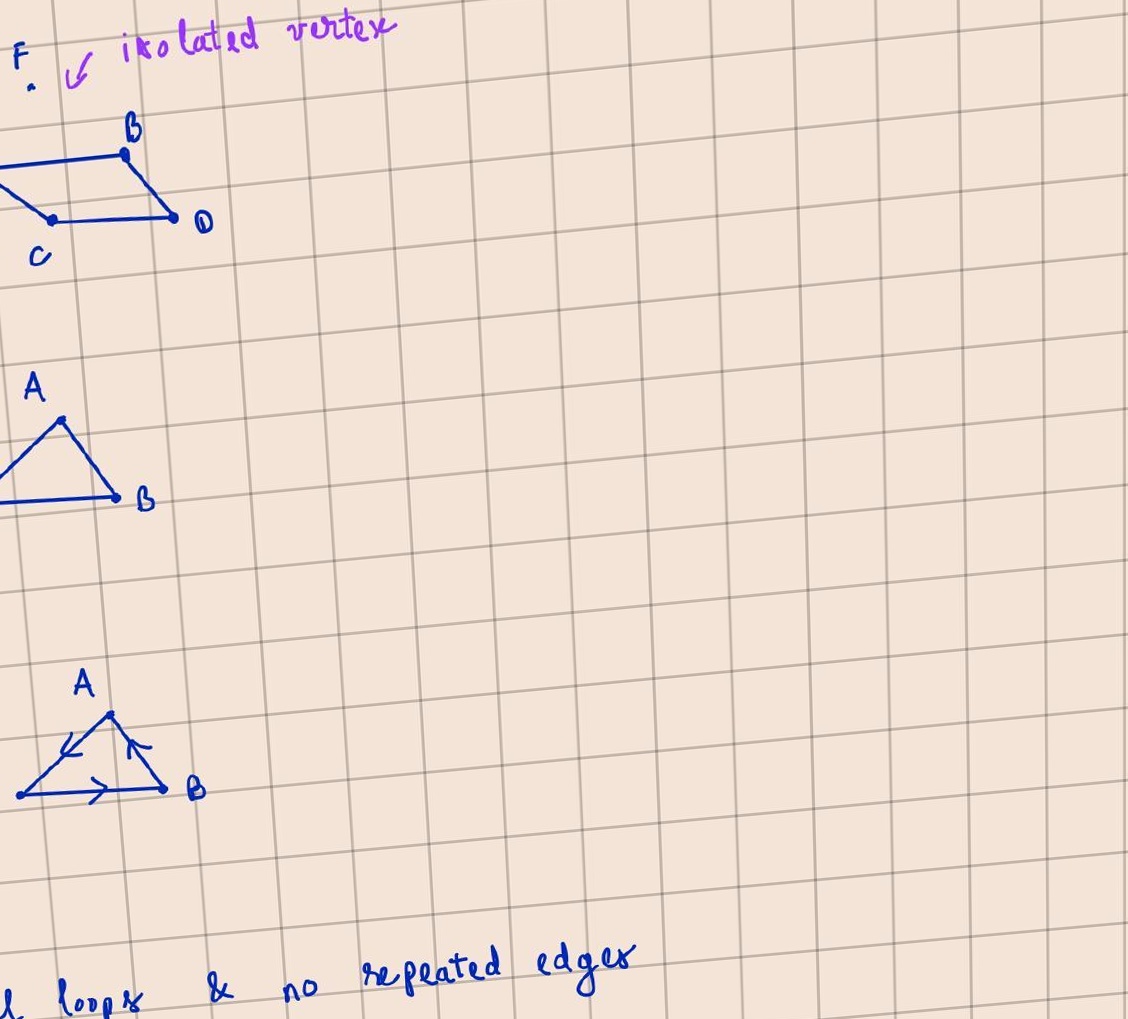 isolated vertex
F
B
D
C
A
B
A
B
loops & no repeated edges